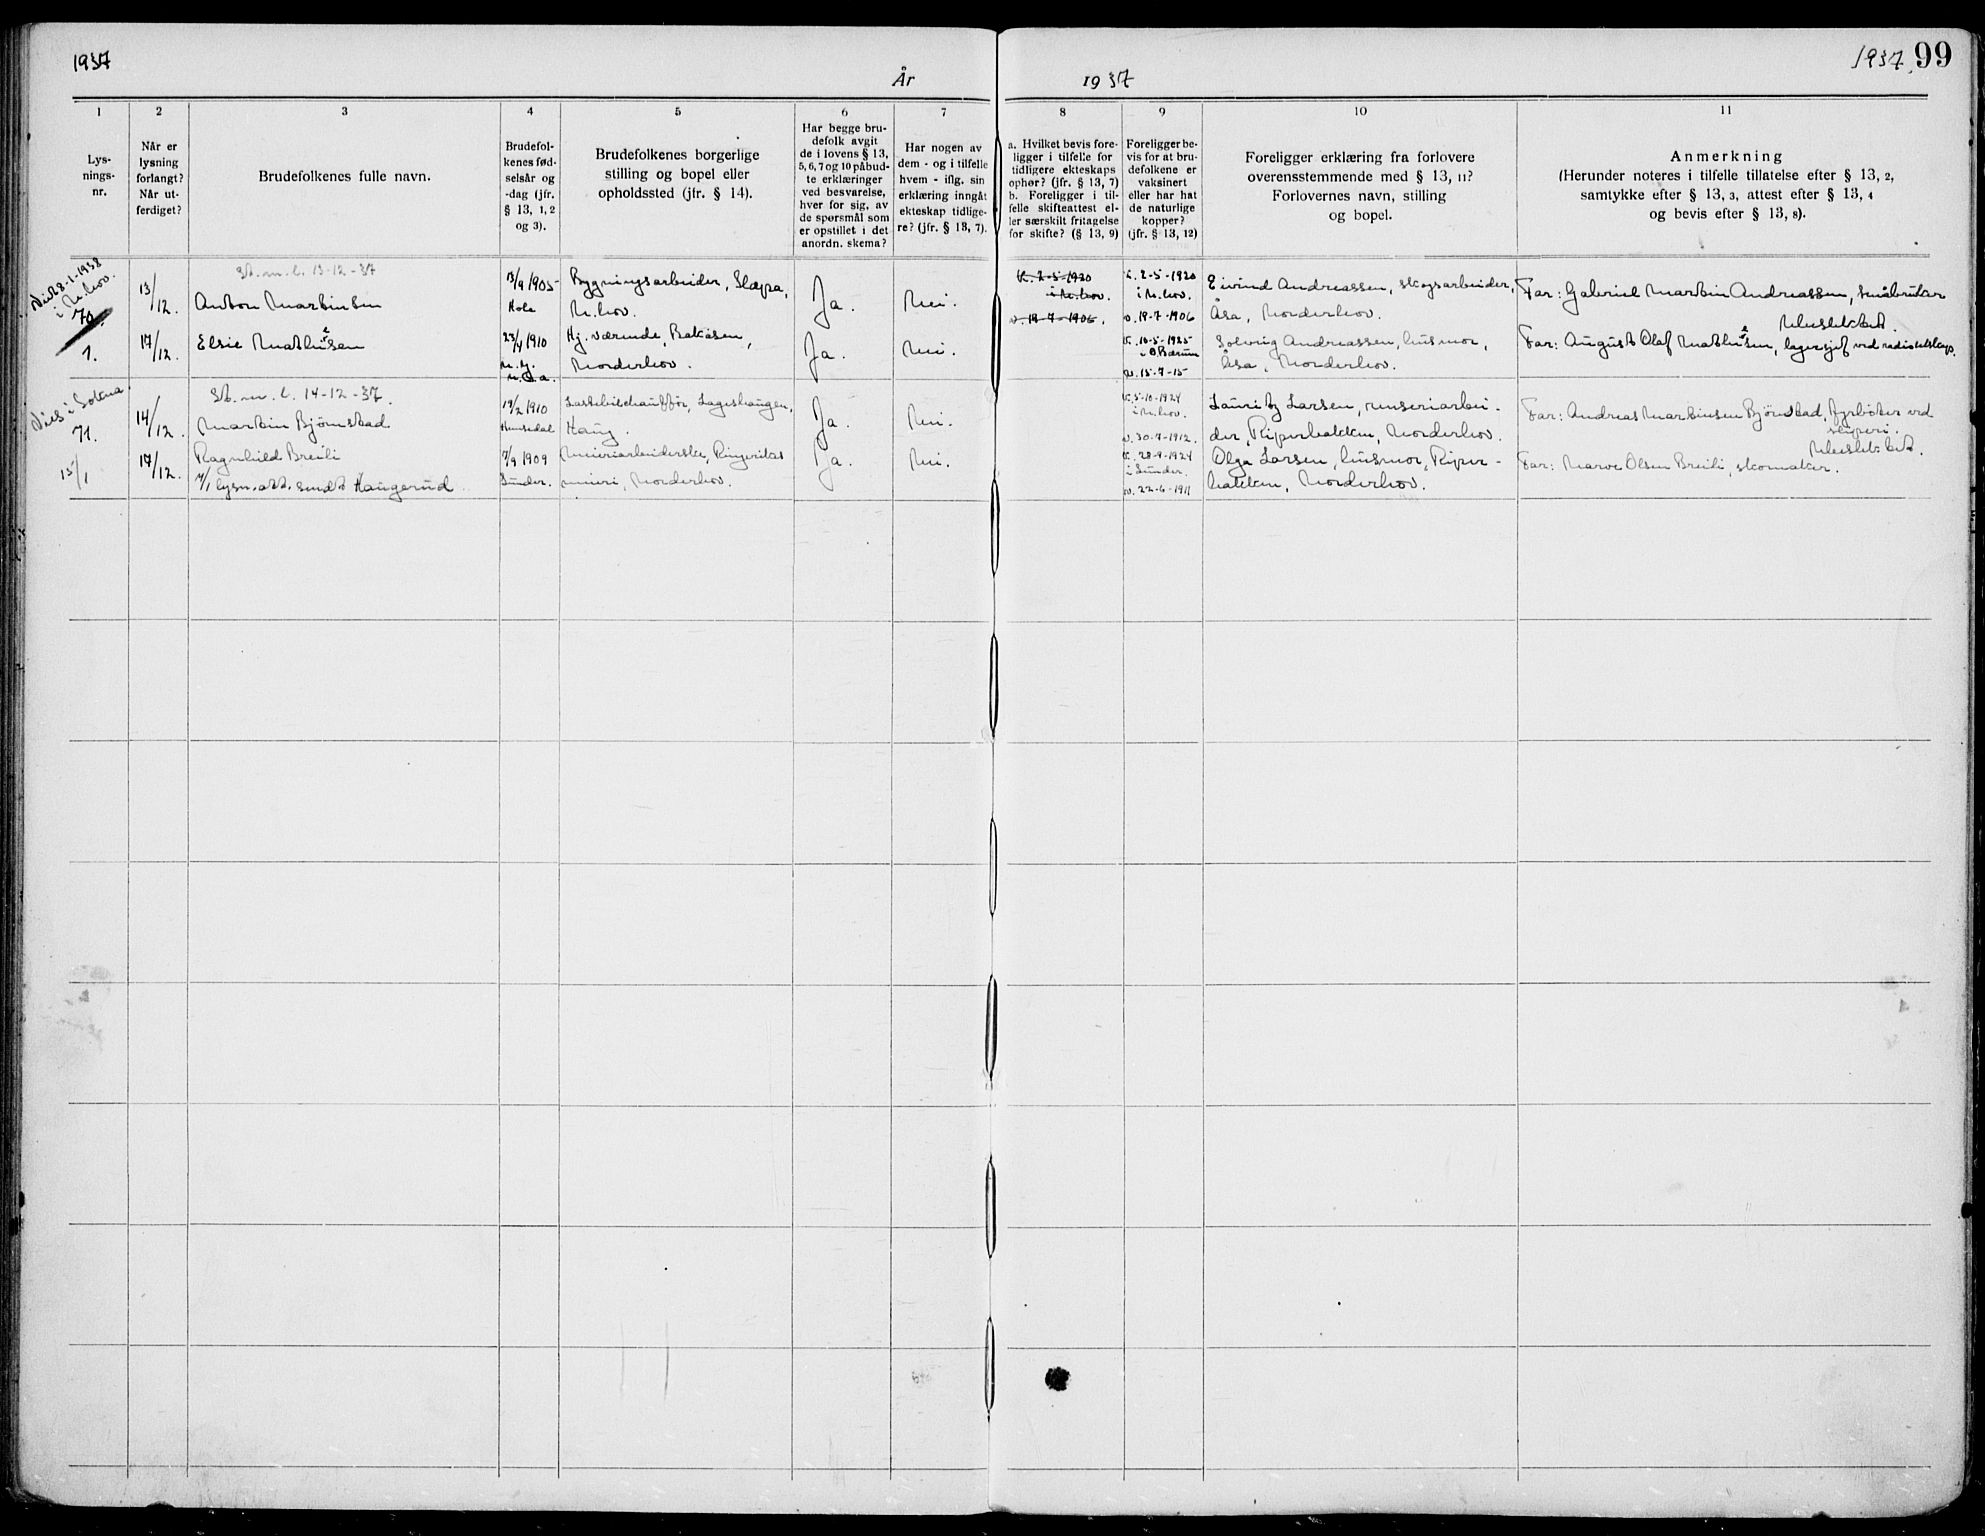 1937
År
1937
1937. 99
1
Lys-
nings-
nr.
2
Når er
lysning
forlangt?
Når ut-
ferdiget?
3
Brudefolkenes fulle navn.
4
Brudefol-
kenes fød-
selsår og
-dag (jfr.
§ 13, 1, 2
og 3).
5
Brudefolkenes borgerlige
stilling og bopel eller
opholdssted (jfr. § 14).
6
Har begge bru-
defolk avgit
de i lovens § 13,
5, 6, 7 og 10 påbud-
te erklæringer
ved besvarelse,
hver for sig, av
de spørsmål som
er opstillet i det
anordn. skema?
7
Har nogen av
dem - og i tilfelle
hvem - iflg. sin
erklæring inngåt
ekteskap tidlige-
re? (jfr. § 13, 7).
8
a. Hvilket bevis fore-
ligger i tilfelle for
tidligere ekteskaps
ophør? (jfr. § 13, 7)
b. Foreligger i til-
felle skifteattest el-
ler særskilt fritagelse
for skifte? (§ 13, 9)
9
Foreligger be-
vis for at bru-
defolkene er
vaksinert
eller har hat
de naturlige
kopper?
(jfr. § 13, 12)
10
Foreligger erklæring fra forlovere
overensstemmende med § 13, 11?
Forlovernes navn, stilling
og bopel.
11
Anmerkning
(Herunder noteres i tilfelle tillatelse efter § 13, 2,
samtykke efter § 13, 3, attest efter § 13, 4
og bevis efter § 13, 8).
Viet 8-1-1938
i N.hov.
70.
1.
13/12.
17/12.
St. m. l. 13-12-37
Anton Martinsen
Elsie Mathisen
13/9 1905
Hole
23/4 1910
Bygningsarbeider,
N.hov.
Hj. værende, Bakåsen,
Norderhov.
Ja.
Ja.
Nei.
Nei.
K. 2-5-1920
i N.hov.
v. 19-7-1906.
K. 2-5-1920
i N.hov.
v. 19-7-1906
K. 10-5-1925
i Ø. Bærum
v. 15-7-15
Eivind Andreassen, skogsarbeider,
Åsa, Norderhov.
Solveig Andreassen, husmor,
Åsa, Norderhov.
Far: Gabriel Martin Andreassen, småbruker
Ubeslektet.
Far: August Olaf Mathisen, lagersjef ved radioselskap.
Viet i Sokna.
71.
15/1
14/12.
17/12.
St. m. l. 14-12-37.
Martin Bjørnstad
Ragnhild Breili
7/1 lysn. att. sendt Haugerud
19/2 1910
Hemsedal
7/9 1909
Sigdal
Lastebilchauffør, Lageshaugen,
Haug.
Meieriarbeiderske, Ringerikes
meieri, Norderhov.
Ja.
Ja.
Nei.
Nei.
K. 5-10-1924
i N.hov.
v. 30-7-1912.
K. 28-9-1924
v. 22-6-1911
Lauritz Larsen, renseriarbei-
der, Riperbakken, Norderhov.
Olga Larsen, husmor, Riper-
bakken, Norderhov.
Far: Andreas Martinsen Bjørnstad, fyrbøter ved
sliperi.
Ubeslektet.
Far: Olsen Breili, skomaker.